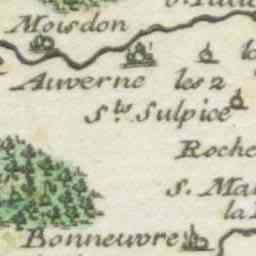 Moisdon
Auverne les 2
Sts. Sulpice
Roche
S. Ma
la
Bonneuvre